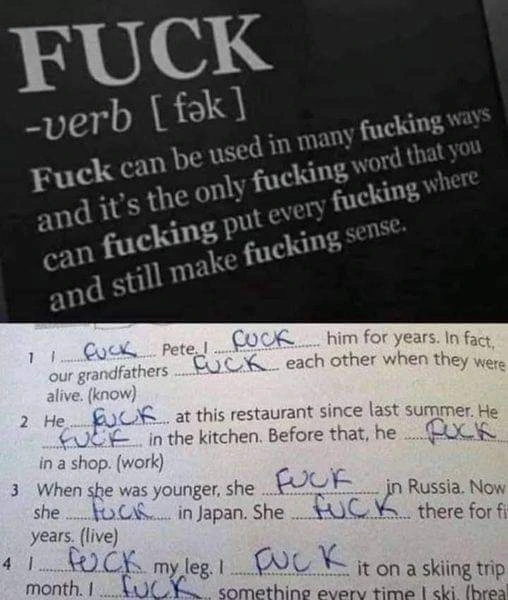 FUCK
-verb [fək]
Fuck can be used in many fucking ways
and it's the only fucking word that you
can fucking put every fucking where
and still make fucking sense.
1 I fuck Pete. I fuck him for years. In fact,
our grandfathers fuck each other when they were
alive. (know)
2 He fuck at this restaurant since last summer. He
fuck in the kitchen. Before that, he fuck
in a shop. (work)
3 When she was younger, she fuck in Russia. Now
she fuck in Japan. She fuck there for fi
years. (live)
4 I fuck my leg. I fuck it on a skiing trip
month. I fuck something every time I ski. (brea